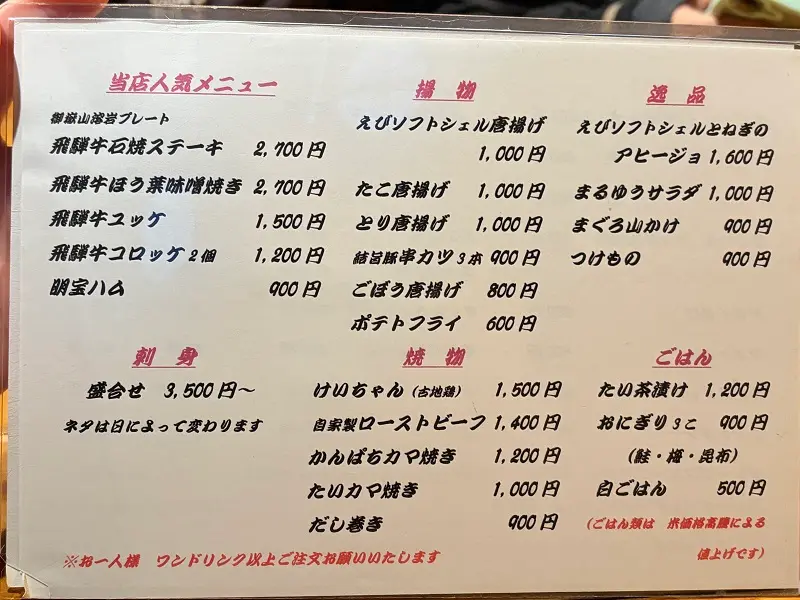 当店人気メニュー
御嶽山溶岩プレート
飛騨牛石焼ステーキ 2,700円
飛騨牛ほう葉味噌焼き 2,700円
飛騨牛ユッケ 1,500円
飛騨牛コロッケ2個 1,200円
明宝ハム 900円
揚物
えびソフトシェル唐揚げ
1,000円
たこ唐揚げ 1,000円
とり唐揚げ 1,000円
結旨豚串カツ3本 900円
ごぼう唐揚げ 800円
ポテトフライ 600円
逸品
えびソフトシェルとねぎの
アヒージョ 1,600円
まるゆうサラダ 1,000円
まぐろ山かけ 900円
つけもの 900円
刺身
盛合せ 3,500円～
ネタは日によって変わります
焼物
けいちゃん(古地鶏) 1,500円
自家製ローストビーフ 1,400円
かんぱちカマ焼き 1,200円
たいカマ焼き 1,000円
だし巻き 900円
ごはん
たい茶漬け 1,200円
おにぎり3こ 900円
(鮭・梅・昆布)
白ごはん 500円
(ごはん類は 米価格高騰による
値上げです)
※お一人様 ワンドリンク以上ご注文お願いいたします